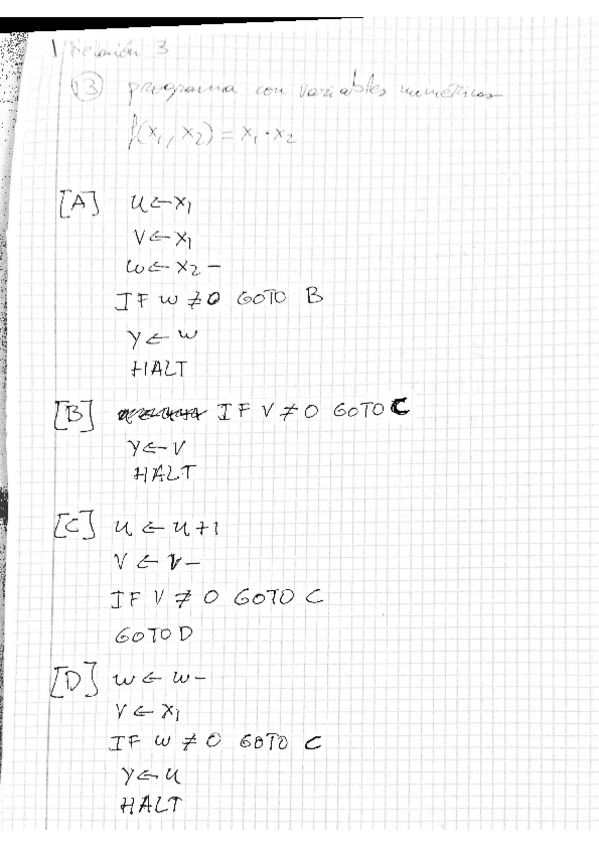 Relación 3
13 programa con variables numéricas
f(x1, x2) = x1 · x2
[A] u ← x1
V ← x1
w ← x2 -
IF w ≠ 0 GOTO B
Y ← w
HALT
[B] IF V ≠ 0 GOTO C
Y ← V
HALT
[C] u ← u + 1
V ← V -
IF V ≠ 0 GOTO C
GOTO D
[D] w ← w -
V ← x1
IF w ≠ 0 GOTO C
Y ← u
HALT